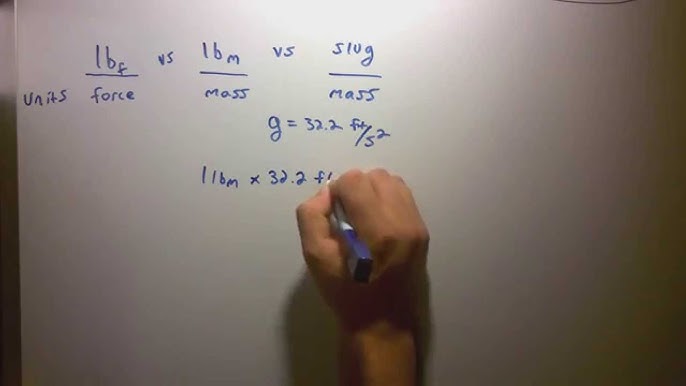 lbf vs lbm vs slug
units force mass mass
g = 32.2 ft/s²
1 lbm × 32.2 f